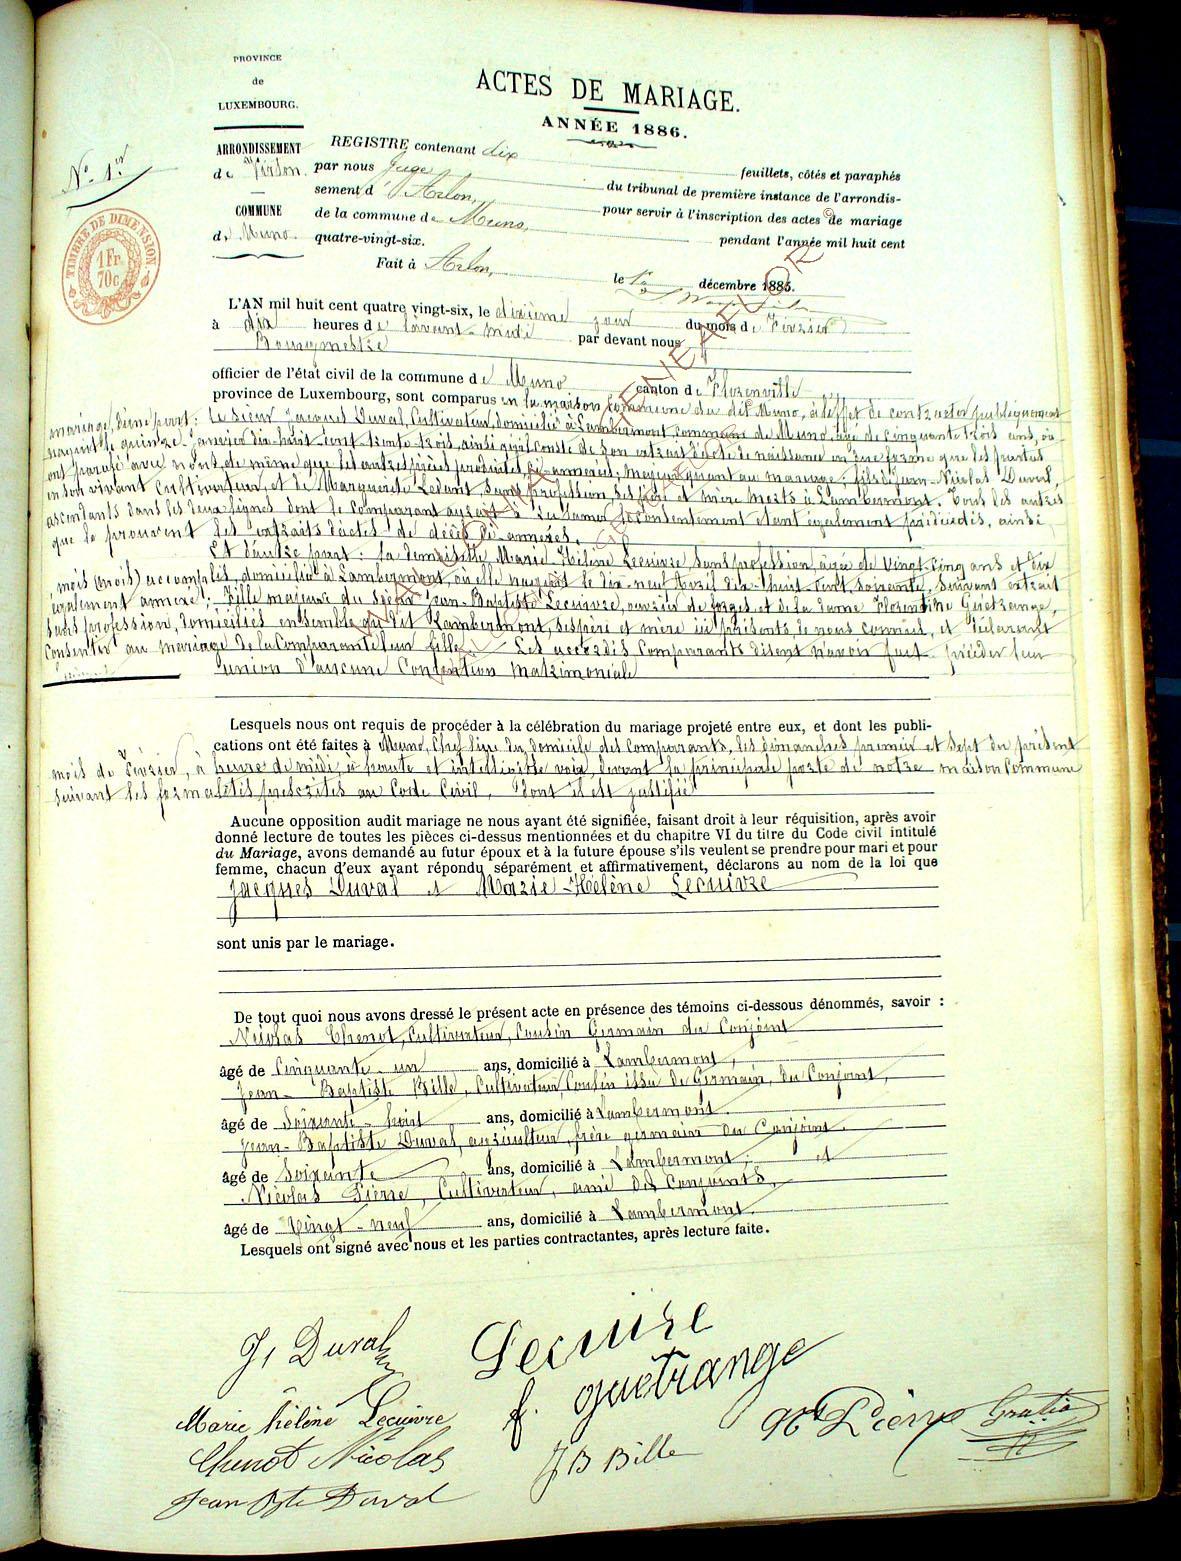 PROVINCE
de
LUXEMBOURG.
ARRONDISSEMENT
de Virton.
COMMUNE
de Muno.
N° 1er
TIMBRE DE DIMENSION
1 Fr.
70 c.
ACTES DE MARIAGE.
ANNÉE 1886.
REGISTRE contenant dix feuillets, côtés et paraphés
par nous Juge du tribunal de première instance de l'arrondis-
sement d'Arlon, pour servir à l'inscription des actes de mariage
de la commune de Muno, pendant l'année mil huit cent
quatre-vingt-six.
Fait à Arlon, le 1er décembre 1885.
L'AN mil huit cent quatre vingt-six, le dixième jour du mois de Février
à dix heures de l'avant-midi par devant nous
Bourgmestre
officier de l'état civil de la commune de Muno canton de Florenville
province de Luxembourg, sont comparus en la maison commune du dit Muno, à l'effet de contracter publiquement
mariage, d'une part: Le sieur Jacques Duval, Cultivateur, domicilié à Lambermont, commune de Muno, âgé de cinquante trois ans, où
naquit le quinze Janvier dix-huit cent trente-trois, ainsi qu'il conste de son extrait d'acte de naissance en due forme que les parties
ont paraphé avec nous, de même que les autres pièces produites ci-annexées, majeur quant au mariage; fils de Jean-Nicolas Duval,
en son vivant cultivateur et de Marguerite Ledant, sans profession, ses père et mère morts à Lambermont. Tous les autres
ascendants dans les deux lignes dont le comparant aurait consentement étant également prédécédés, ainsi
que le prouvent les extraits d'actes de décès ci-annexés.
Et d'autre part: la demoiselle Marie-Hélène Lecuivre, sans profession, âgée de vingt-cinq ans et dix
mois (mois) accomplis, domiciliée à Lambermont, où elle naquit le dix-neuf Avril dix-huit cent soixante, suivant extrait
également annexé; fille majeure du sieur Jean-Baptiste Lecuivre, ouvrier de forges et de la dame Florentine Guetrange,
sans profession, domiciliés ensemble au dit Lambermont, ses père et mère ici présents, de nous connus, et déclarant
consentir au mariage de la comparante leur fille. Les accordés comparants disent n'avoir fait précéder leur
union d'aucune Convention matrimoniale
Lesquels nous ont requis de procéder à la célébration du mariage projeté entre eux, et dont les publi-
cations ont été faites à Muno, chef lieu du domicile des comparants, les dimanches premier et sept du présent
mois de Février, à heure de midi, à haute et intelligible voix, devant la principale porte de notre maison commune
suivant les formalités prescrites au Code Civil, dont il est justifié
Aucune opposition audit mariage ne nous ayant été signifiée, faisant droit à leur réquisition, après avoir
donné lecture de toutes les pièces ci-dessus mentionnées et du chapitre VI du titre du Code civil intitulé
du Mariage, avons demandé au futur époux et à la future épouse s'ils veulent se prendre pour mari et pour
femme, chacun d'eux ayant répondu séparément et affirmativement, déclarons au nom de la loi que
Jacques Duval et Marie-Hélène Lecuivre
sont unis par le mariage.
De tout quoi nous avons dressé le présent acte en présence des témoins ci-dessous dénommés, savoir :
Nicolas Chenot, Cultivateur, Cousin Germain du Conjoint
âgé de Cinquante-un ans, domicilié à Lambermont,
Jean-Baptiste Bille, Cultivateur, Cousin issu de Germain, du Conjoint,
âgé de Soixante-huit ans, domicilié à Lambermont.
Jean-Baptiste Duval, agriculteur, frère germain du Conjoint.
âgé de Soixante ans, domicilié à Lambermont; et
Nicolas Pierre, Cultivateur, ami des Conjoints,
âgé de Vingt-neuf ans, domicilié à Lambermont.
Lesquels ont signé avec nous et les parties contractantes, après lecture faite.
J, Duval
Lecuivre
f. guetrange
Marie hélène Lecuivre
Nas Pierre
Gratia
Chenot Nicolas
J B Bille
Jean Bte Duval